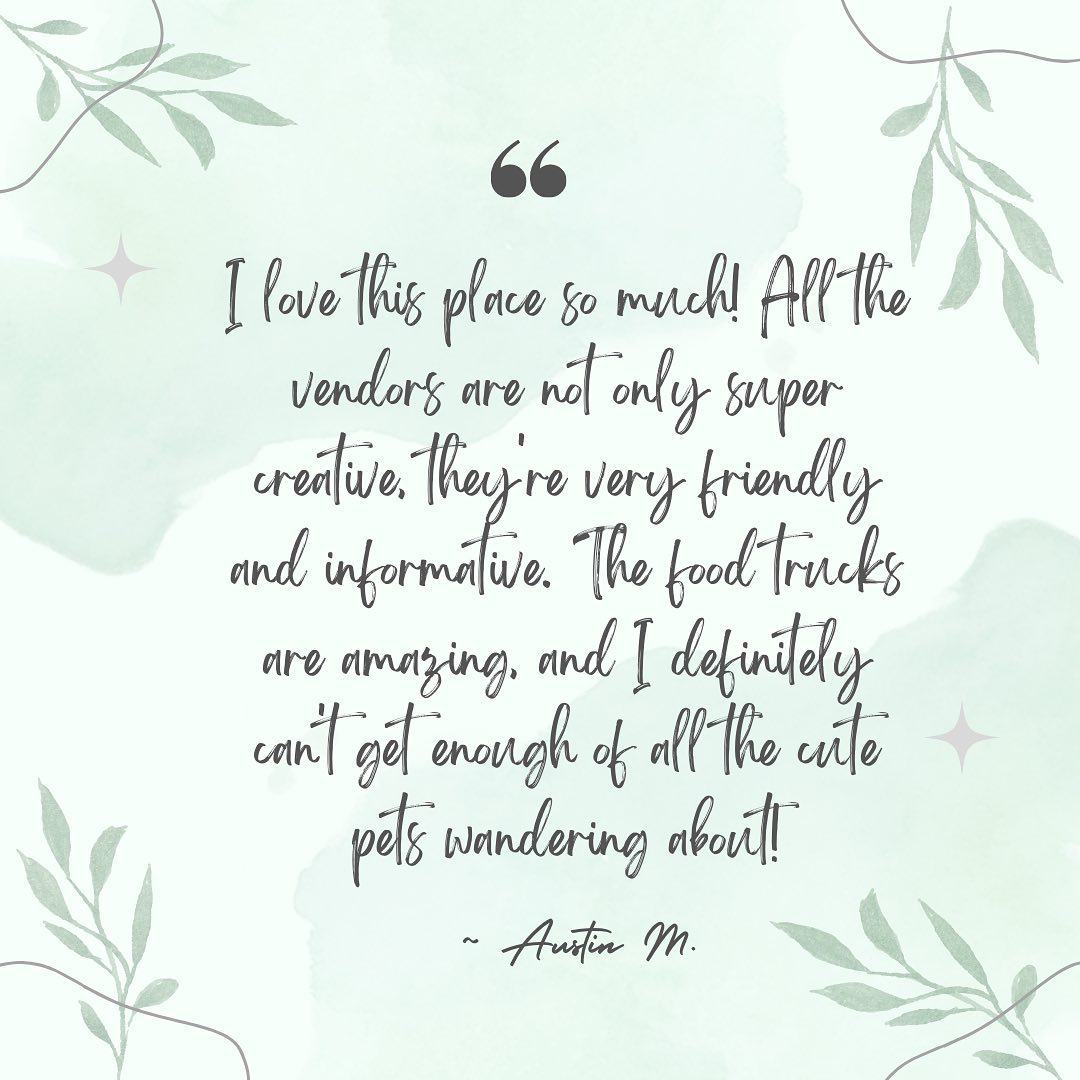 “
I love this place so much! All the
vendors are not only super
creative, they're very friendly
and informative. The food trucks
are amazing, and I definitely
can't get enough of all the cute
pets wandering about!
~ Austin M.